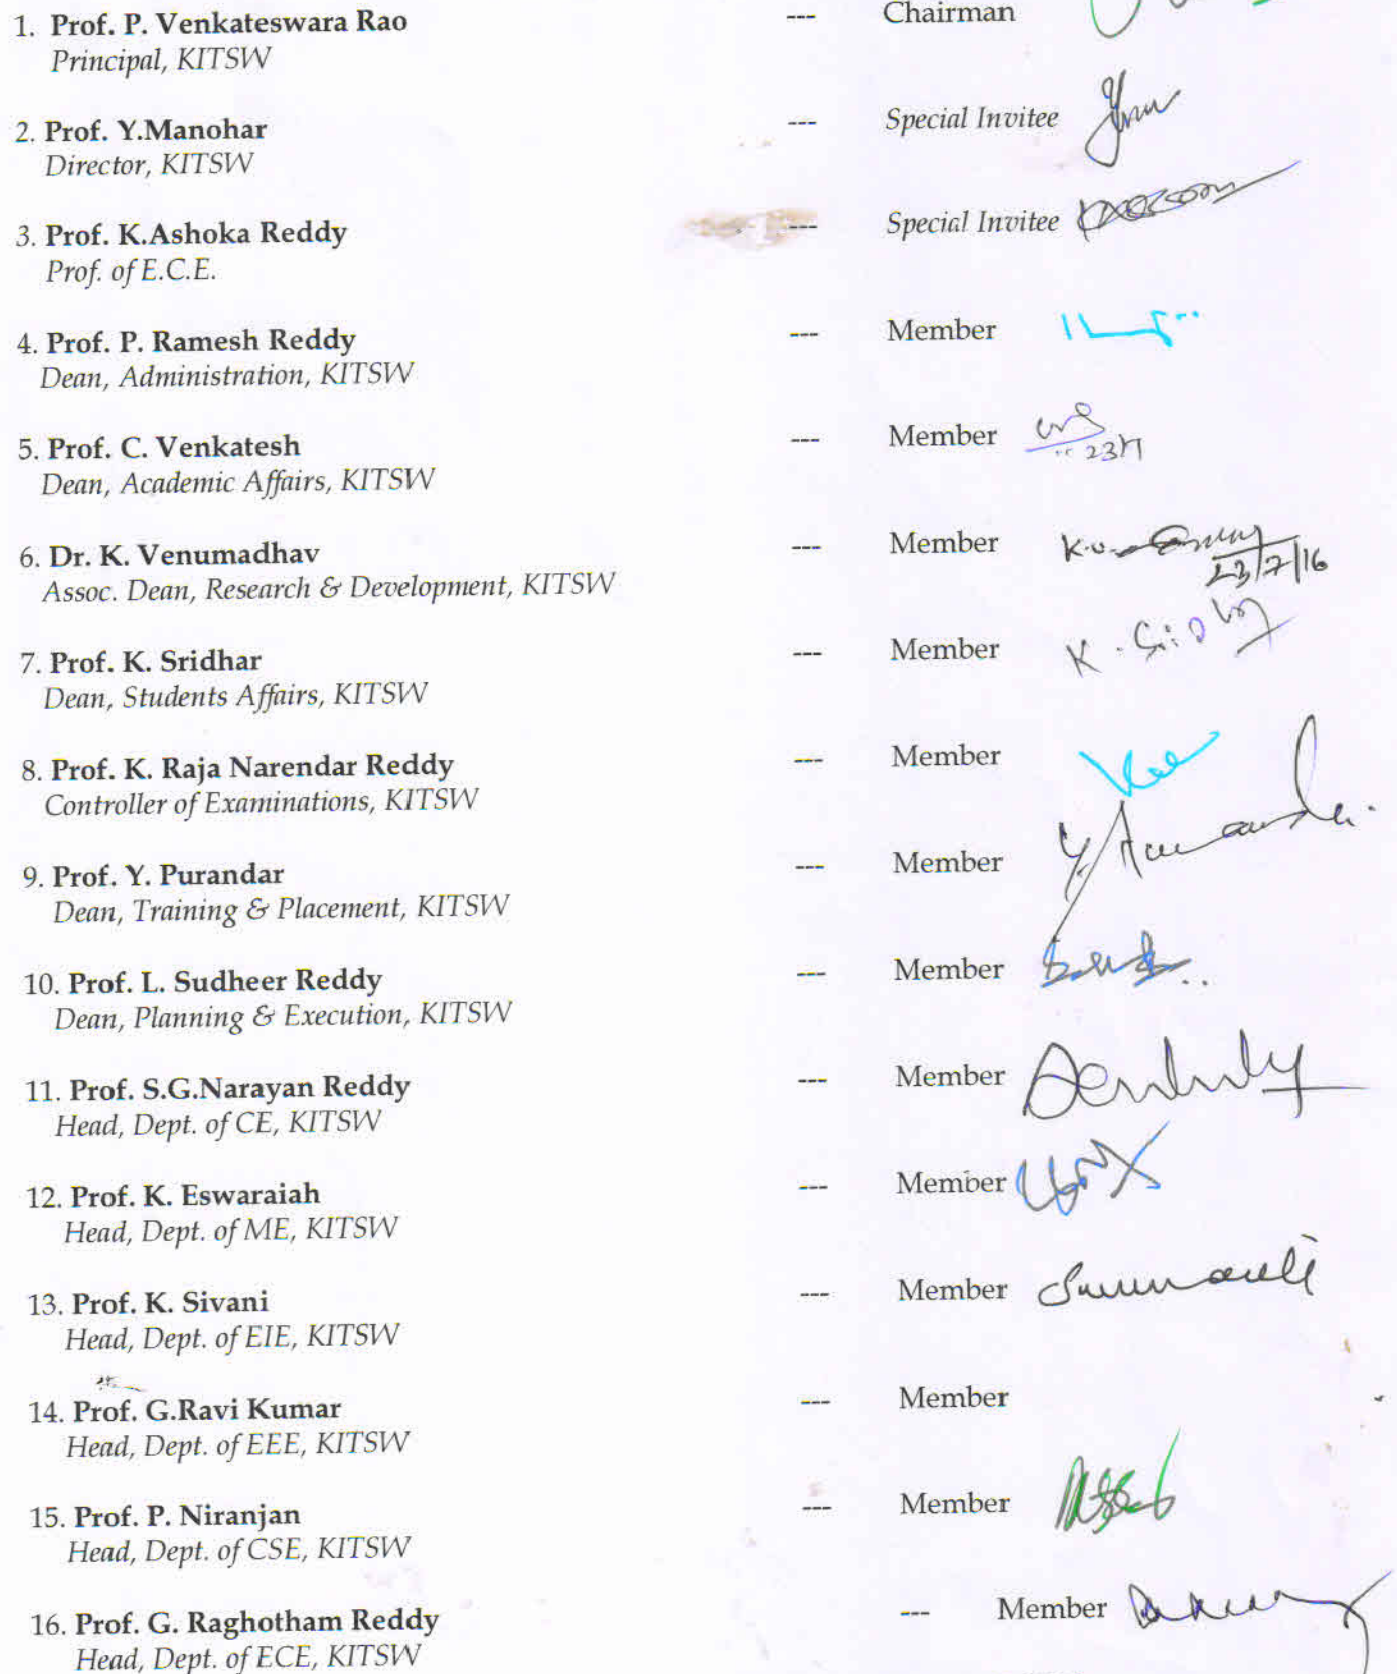 1. Prof. P. Venkateswara Rao --- Chairman
Principal, KITSW
2. Prof. Y.Manohar --- Special Invitee
Director, KITSW
3. Prof. K.Ashoka Reddy --- Special Invitee
Prof. of E.C.E.
4. Prof. P. Ramesh Reddy --- Member
Dean, Administration, KITSW
5. Prof. C. Venkatesh --- Member
23/7
Dean, Academic Affairs, KITSW
6. Dr. K. Venumadhav --- Member
23/7/16
Assoc. Dean, Research & Development, KITSW
7. Prof. K. Sridhar --- Member
Dean, Students Affairs, KITSW
8. Prof. K. Raja Narendar Reddy --- Member
Controller of Examinations, KITSW
9. Prof. Y. Purandar --- Member
Dean, Training & Placement, KITSW
10. Prof. L. Sudheer Reddy --- Member
Dean, Planning & Execution, KITSW
11. Prof. S.G.Narayan Reddy --- Member
Head, Dept. of CE, KITSW
12. Prof. K. Eswaraiah --- Member
Head, Dept. of ME, KITSW
13. Prof. K. Sivani --- Member
Head, Dept. of EIE, KITSW
14. Prof. G.Ravi Kumar --- Member
Head, Dept. of EEE, KITSW
15. Prof. P. Niranjan --- Member
Head, Dept. of CSE, KITSW
16. Prof. G. Raghotham Reddy --- Member
Head, Dept. of ECE, KITSW